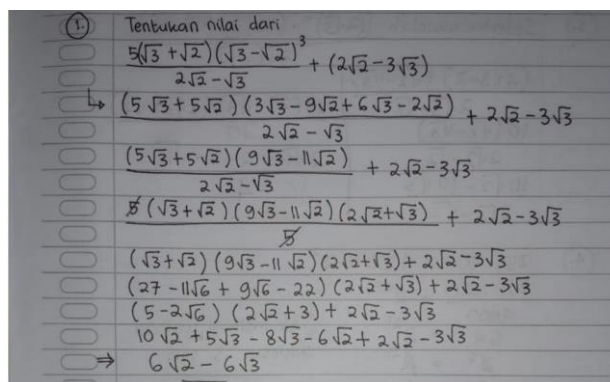 1. Tentukan nilai dari
5(√3 + √2) (√3 - √2)³ / 2√2 - √3 + (2√2 - 3√3)
↳ (5√3 + 5√2) (3√3 - 9√2 + 6√3 - 2√2) / 2√2 - √3 + 2√2 - 3√3
(5√3 + 5√2) (9√3 - 11√2) / 2√2 - √3 + 2√2 - 3√3
5 (√3 + √2) (9√3 - 11√2) (2√2 + √3) / 5 + 2√2 - 3√3
(√3 + √2) (9√3 - 11√2) (2√2 + √3) + 2√2 - 3√3
(27 - 11√6 + 9√6 - 22) (2√2 + √3) + 2√2 - 3√3
(5 - 2√6) (2√2 + 3) + 2√2 - 3√3
10√2 + 5√3 - 8√3 - 6√2 + 2√2 - 3√3
⇒ 6√2 - 6√3